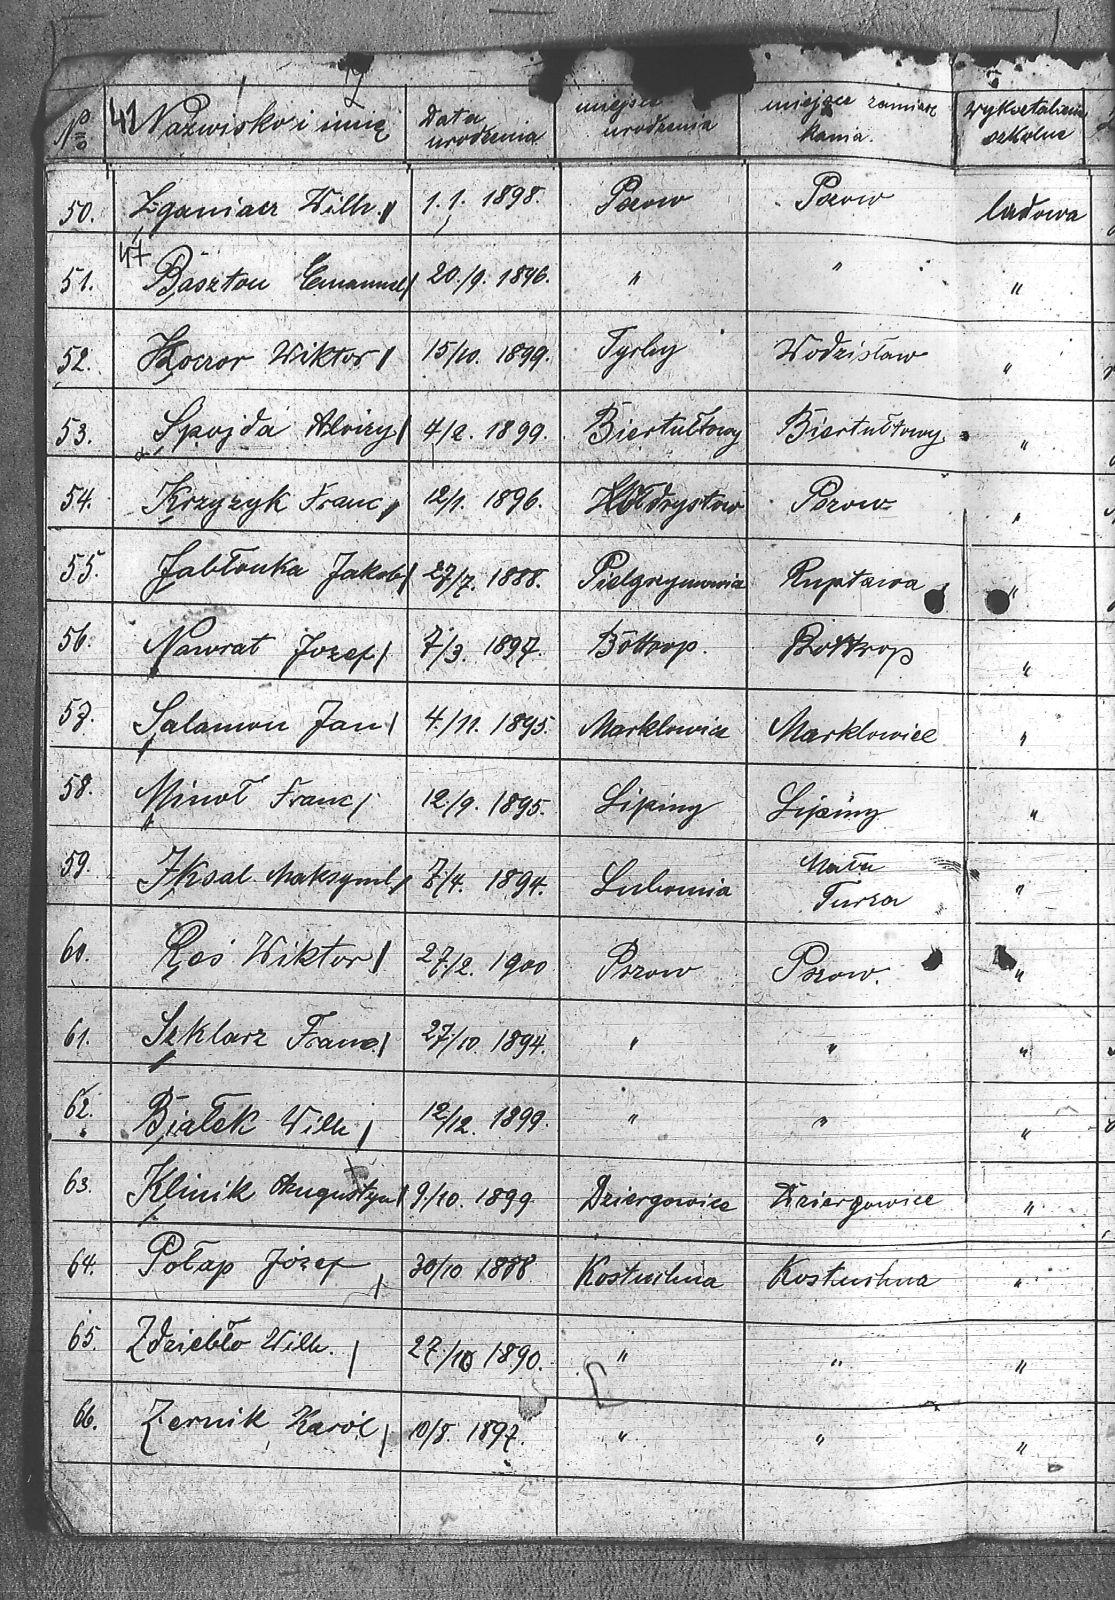 No 42 Nazwisko i imię Data urodzenia miejsce urodzenia miejsce zamieszkania. wykształcenie szkolne
50. Zganiacz Wilh. 1.1. 1898. Pszow Pszow ludowa
47
51. Baszton Emanuel 20./9. 1896. " " "
52. Koczor Wiktor 15/10. 1899. Wodzisław "
53. Spojda Alojzy 4/2. 1899. Biertułtowy Biertułtowy. "
54. Krzyżyk Franc. 12/1. 1896. Pszow "
55. Jabłonka Jakob 27/7. 1888. Pielgrzymowice Ruptawa "
56. Nawrat Jozef 7/3. 1897. Bottrop. Bottrop "
57. Salamon Jan 4./11. 1895. Marklowice Marklowice "
58. Minoł Franc 12./9. 1895. Lipiny Lipiny "
59. Maksymil. 7/4. 1894. Lubomia Mała Turza "
60. Reś Wiktor 27/2. 1900 Pszow Pszow. "
61. Szklarz Franc. 27/10. 1894. " " "
62. Białek Wilh 12/12. 1899. " " "
63. Klinik Augustyn 9/10. 1899 Dziergowice Dziergowice "
64. Połap Józef 30/10 1888 Kostuchna Kostuchna "
65. Zdziebło Wilh. 27/10 1890. " " "
66. Żernik Karól 10/8. 1897. " " "